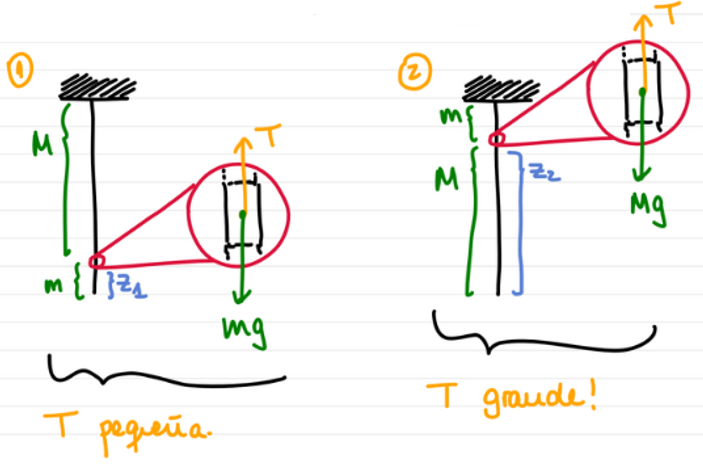 ①
M
m
z₁
T
mg
T pequeña.
②
m
M
z₂
T
Mg
T grande!